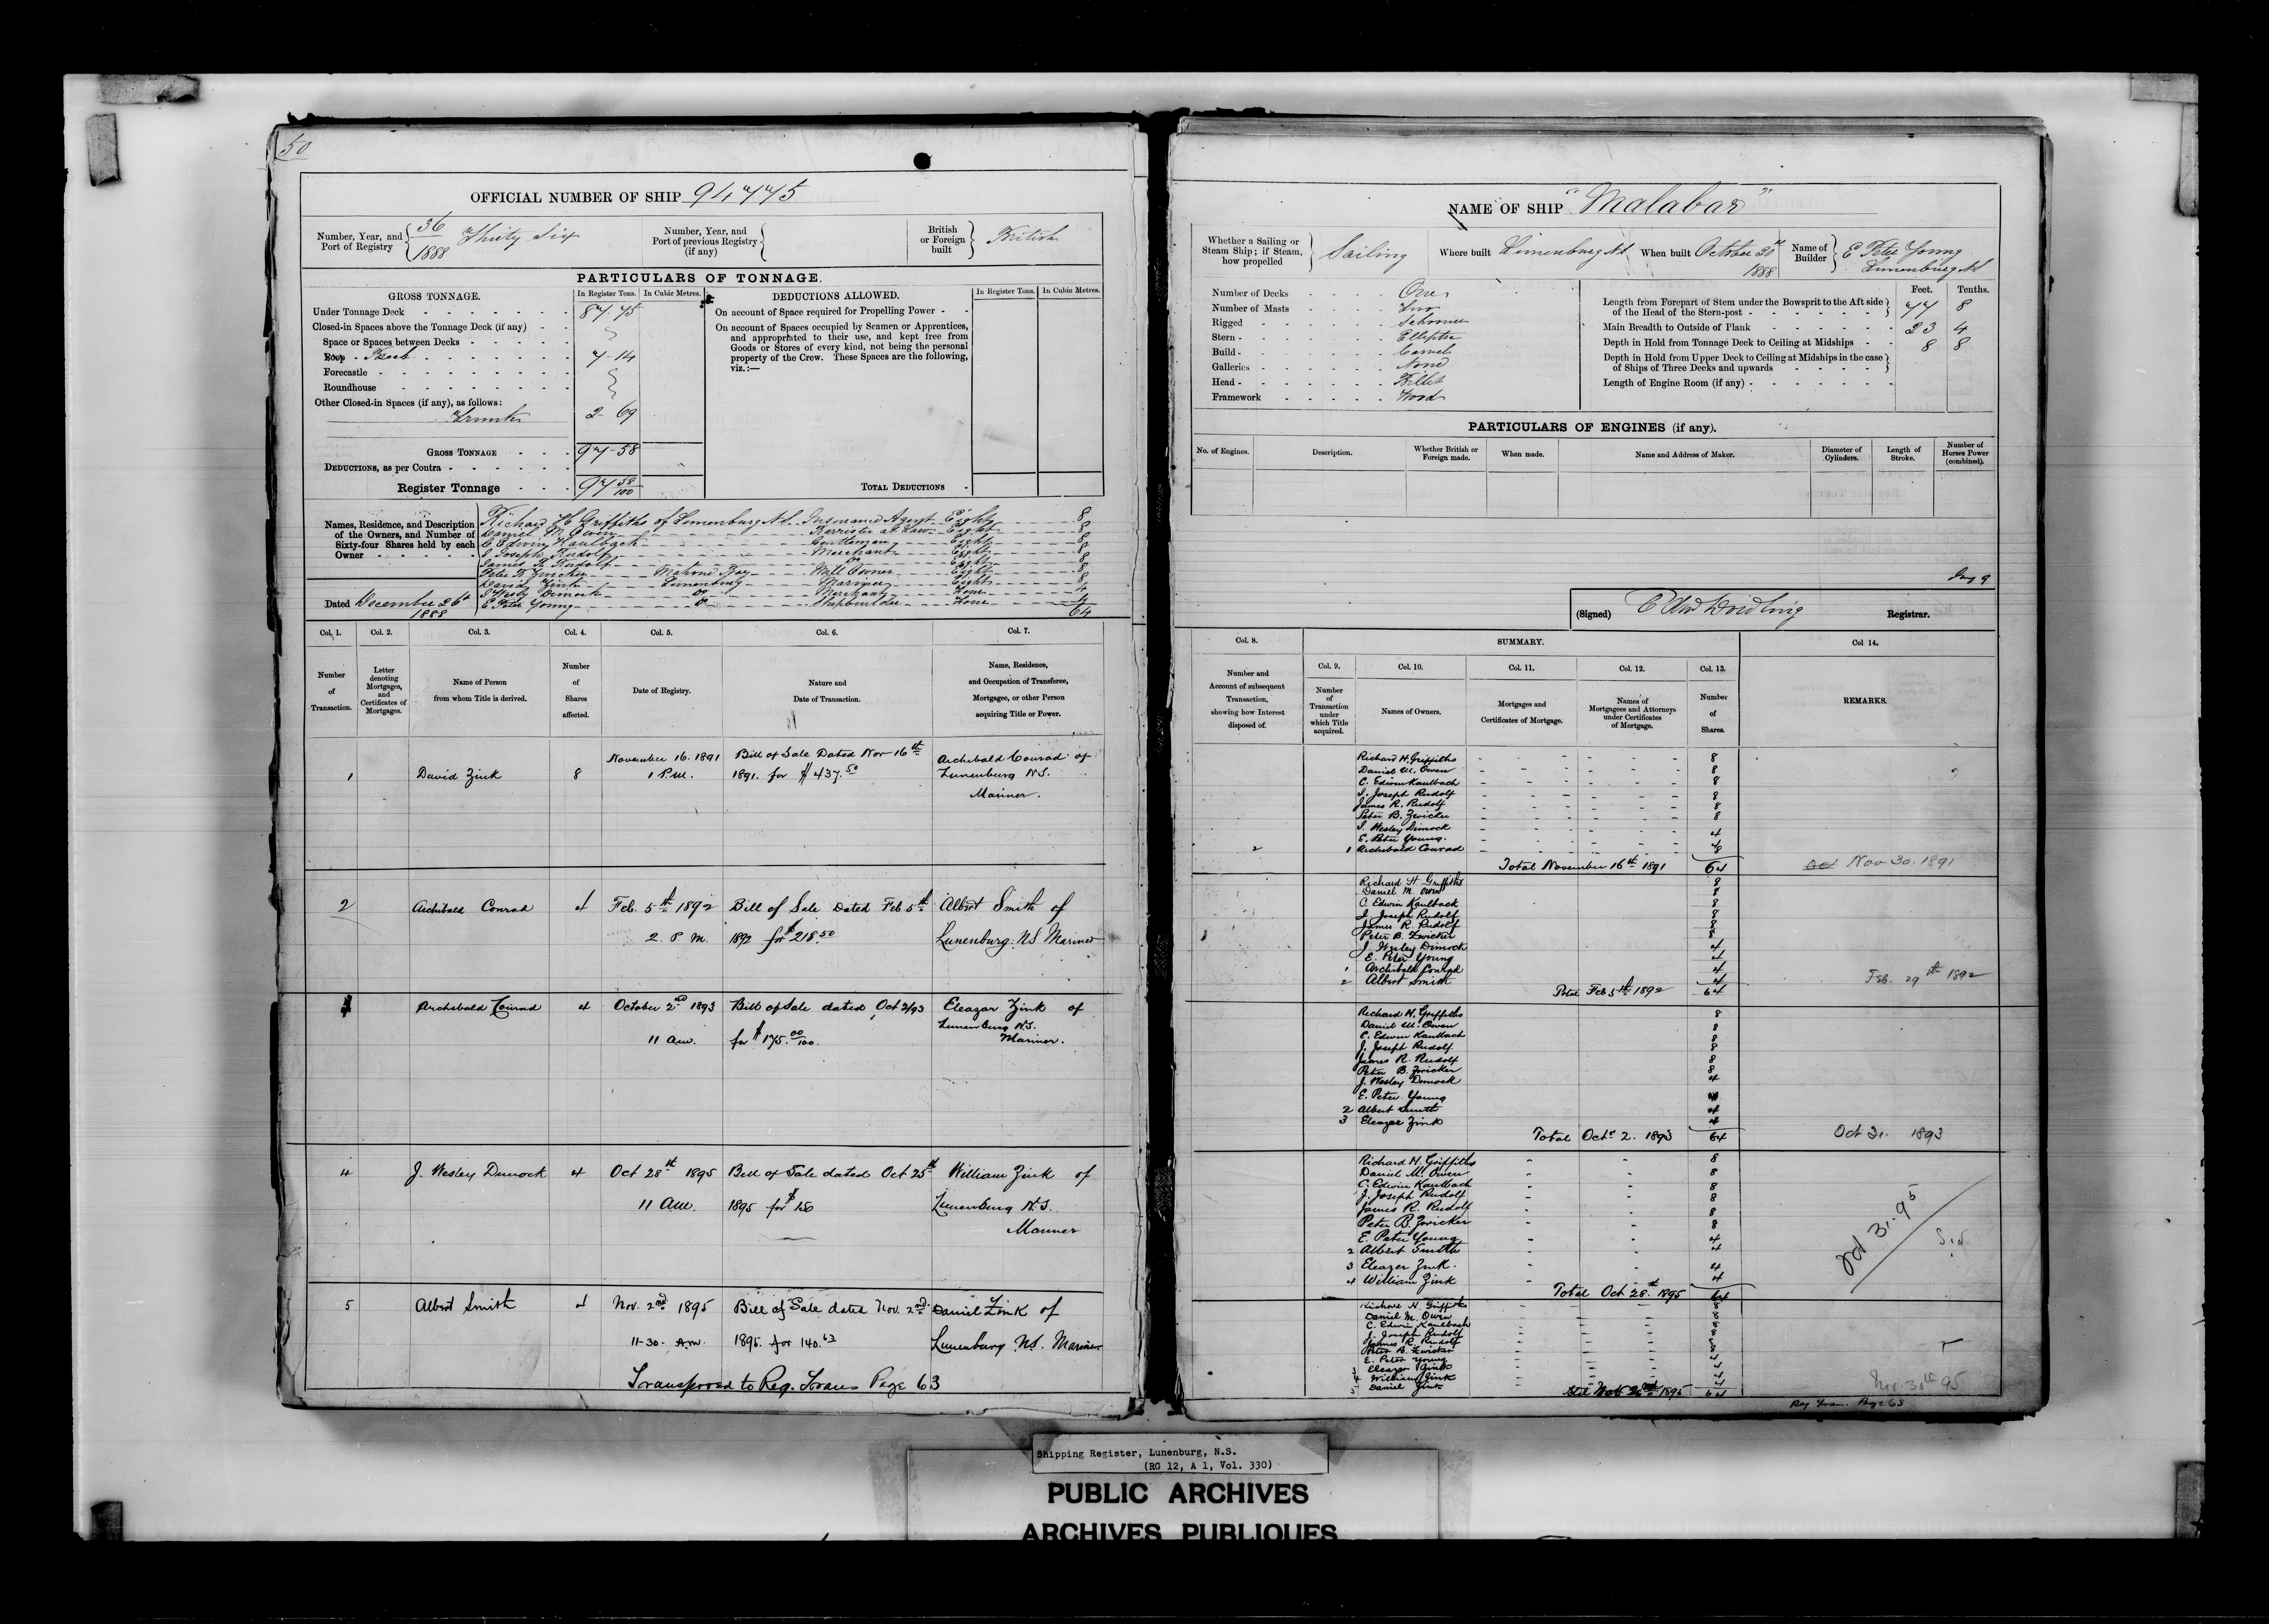 50
OFFICIAL NUMBER OF SHIP 94775
Number, Year, and Port of Registry 36/1888 Thirty Six
Number, Year, and Port of previous Registry (if any)
British or Foreign built British
PARTICULARS OF TONNAGE.
GROSS TONNAGE. In Register Tons. In Cubic Metres.
Under Tonnage Deck 87.75
Closed-in Spaces above the Tonnage Deck (if any)
Space or Spaces between Decks
Poop 7-14
Forecastle
Roundhouse
Other Closed-in Spaces (if any), as follows:
Trunk 2-69
GROSS TONNAGE 97-58
DEDUCTIONS, as per Contra
Register Tonnage 97 58/100
DEDUCTIONS ALLOWED. In Register Tons. In Cubic Metres.
On account of Space required for Propelling Power
On account of Spaces occupied by Seamen or Apprentices,
and appropriated to their use, and kept free from
Goods or Stores of every kind, not being the personal
property of the Crew. These Spaces are the following,
viz.:—
TOTAL DEDUCTIONS
Names, Residence, and Description of the Owners, and Number of Sixty-four Shares held by each Owner
Richard H Griffiths of Lunenburg N.S. Insurance Agent Eight 8
Daniel M. Owen Barrister at Law Eight 8
C Edwin Kaulbach Gentleman Eight 8
J Joseph Rudolf Merchant Eight 8
James R Rudolf Do Eight 8
Peter B Zwicker Mahone Bay Mill Owner Eight 8
David Zink Lunenburg Mariner Eight 8
J Wesley Dimock Do Merchant Four 4
E Peter Young Do Shipbuilder Four 4
64
Dated December 26th 1888
Col. 1. Col. 2. Col. 3. Col. 4. Col. 5. Col. 6. Col. 7.
Number of Transaction.
Letter denoting Mortgages, and Certificates of Mortgages.
Name of Person from whom Title is derived.
Number of Shares affected.
Date of Registry.
Nature and Date of Transaction.
Name, Residence, and Occupation of Transferee, Mortgagee, or other Person acquiring Title or Power.
1 David Zink 8 November 16. 1891 Bill of Sale Dated Nov 16th Archibald Conrad of
1 P.M. 1891. for $437.50 Lunenburg N.S.
Mariner.
2 Archibald Conrad 4 Feb. 5th 1892 Bill of Sale Dated Feb 5th Albert Smith of
2 P.M. 1892 for $218.50 Lunenburg. NS Mariner
Archibald Conrad 4 October 2nd 1893 Bill of Sale dated Oct 2/93 Eleazar Zink of
11 am. for $175.00/100. Lunenburg N.S.
Mariner.
4 J. Wesley Dimock 4 Oct 28th 1895 Bill of Sale dated Oct 25th William Zink of
11 AM. 1895 for $150 Lunenburg N.S.
Mariner
5 Albert Smith 4 Nov. 2nd 1895 Bill of Sale dated Nov. 2nd Daniel Zink of
11-30. Am. 1895. for 140.63 Lunenburg NS. Mariner
Transferred to Reg. Trans Page 63
NAME OF SHIP "Malabar"
Whether a Sailing or Steam Ship; if Steam, how propelled Sailing
Where built Lunenburg N.S
When built October 20th 1888
Name of Builder E Peter Young
Lunenburg N.S
Number of Decks One
Number of Masts Two
Rigged Schooner
Stern Elliptic
Build Carvel
Galleries None
Head Billet
Framework Wood
Feet. Tenths.
Length from Forepart of Stem under the Bowsprit to the Aft side of the Head of the Stern-post 77 8
Main Breadth to Outside of Plank 23 4
Depth in Hold from Tonnage Deck to Ceiling at Midships 8 8
Depth in Hold from Upper Deck to Ceiling at Midships in the case of Ships of Three Decks and upwards
Length of Engine Room (if any)
PARTICULARS OF ENGINES (if any).
No. of Engines. Description. Whether British or Foreign made. When made. Name and Address of Maker. Diameter of Cylinders. Length of Stroke. Number of Horses Power (combined).
(Signed) Registrar.
Col. 8. SUMMARY. Col 14.
Col. 9. Col. 10. Col. 11. Col. 12. Col. 13.
Number and Account of subsequent Transaction, showing how Interest disposed of.
Number of Transaction under which Title acquired.
Names of Owners.
Mortgages and Certificates of Mortgage.
Names of Mortgagees and Attorneys under Certificates of Mortgage.
Number of Shares.
REMARKS.
Richard H. Griffiths 8
Daniel M. Owen 8
C. Edwin Kaulbach 8
J. Joseph Rudolf 8
James R. Rudolf 8
Peter B. Zwicker 8
J. Wesley Dimock 4
E. Peter Young. 4
2 1 Archibald Conrad 8
Total November 16th 1891 64 Nov 30. 1891
Richard H Griffiths 8
Daniel M. Owen 8
C. Edwin Kaulback 8
J. Joseph Rudolf 8
James R. Rudolf 8
Peter B. Zwicker 8
J. Wesley Dimock 4
E. Peter Young 4
1 Archibald Conrad 4
2 Albert Smith 4
Total Feb 5th 1892 64 Feb. 29th 1892
Richard H. Griffiths 8
Daniel M. Owen 8
C. Edwin Kaulbach 8
J. Joseph Rudolf 8
James R. Rudolf 8
Peter B. Zwicker 8
J. Wesley Dimock 4
E. Peter Young 4
2 Albert Smith 4
3 Eleazer Zink 4
Total Octr 2. 1893 64 Oct 31. 1893
Richard H. Griffiths 8
Daniel M. Owen 8
C. Edwin Kaulbach 8
J. Joseph Rudolf 8
James R. Rudolf 8
Peter B. Zwicker 8
E. Peter Young 4
2 Albert Smith 4
3 Eleazer Zink. 4
4 William Zink 4
Total Oct 28th 1895 64
Oct 31-95
Richard H. Griffiths 8
Daniel M. Owen 8
C. Edwin Kaulbach 8
J. Joseph Rudolf 8
James R. Rudolf 8
Peter B. Zwicker 8
E. Peter Young 4
3 Eleazer Zink 4
4 William Zink 4
5 Daniel Zink 4
1895 64 Nov. 30th 95
Reg Tran. Page 63
Shipping Register, Lunenburg, N.S.
(RG 12, A 1, Vol. 330)
PUBLIC ARCHIVES
ARCHIVES PUBLIQUES